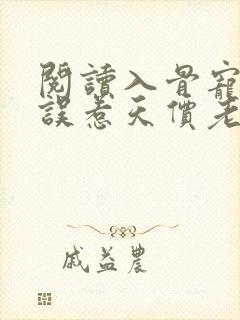 閱讀入骨寵
誤惹天價老
戚益農